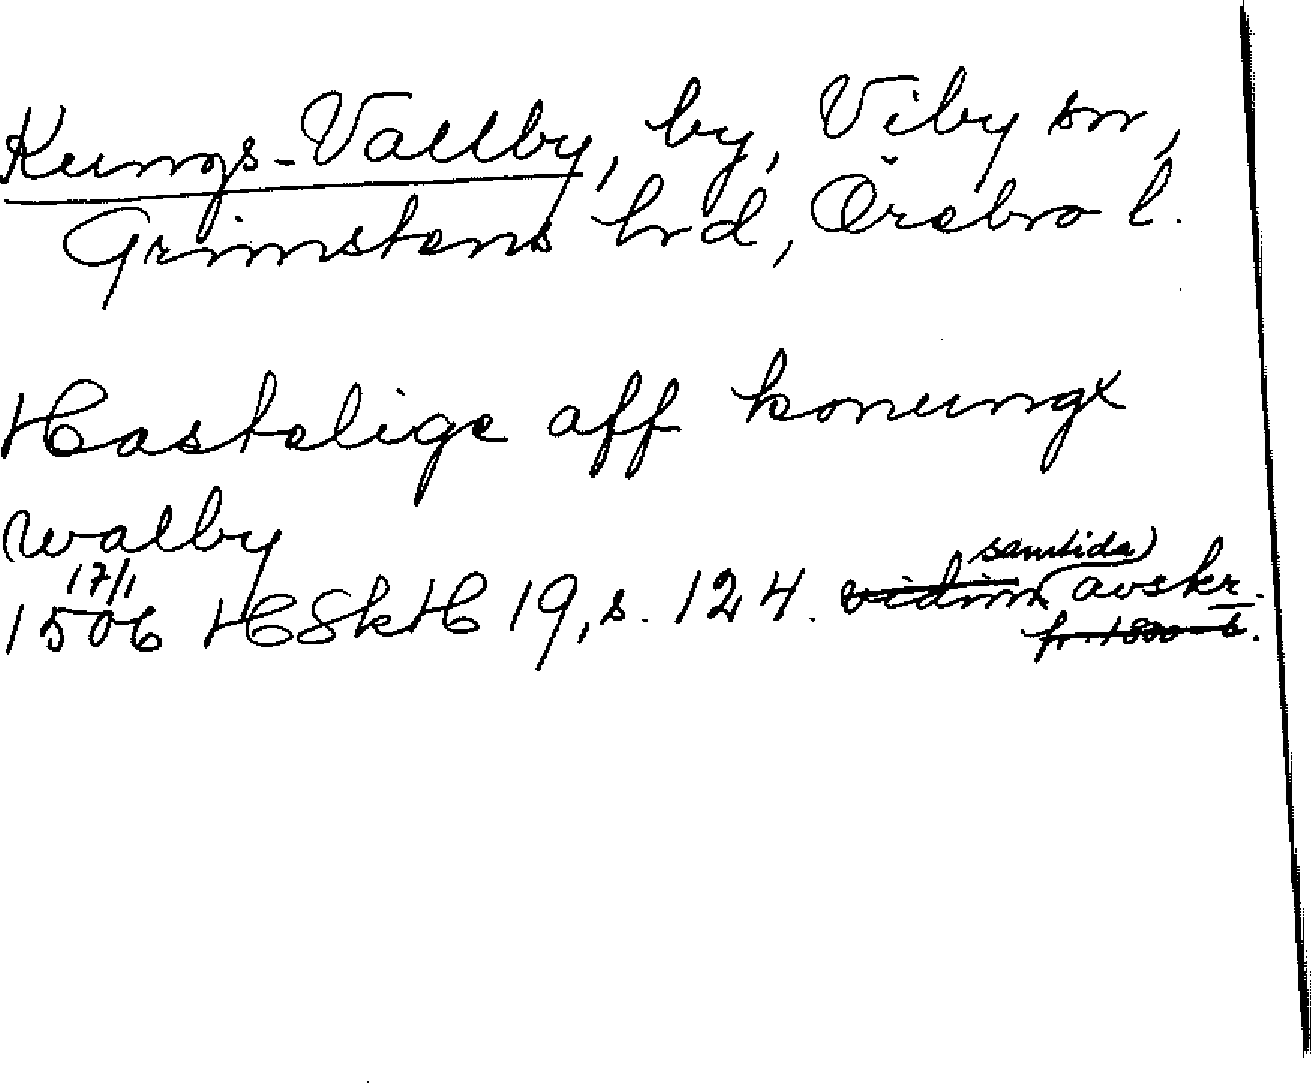 Kungs-Vallby, by, Viby sn,
Grimstens hd, Örebro l.
Hastelige aff konungx
walby
17/1 samtida
1506 HSkH 19, s. 124. vidim avskr.
fr. 1500-t.